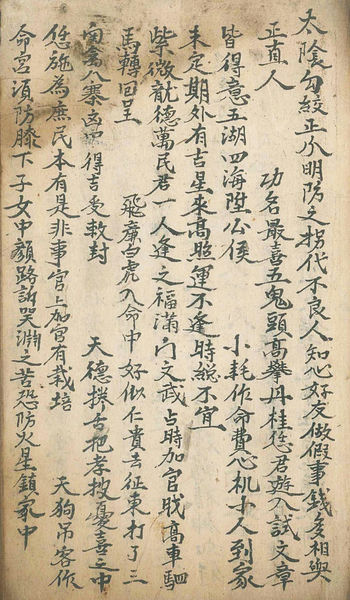 太陰勾絞正分明防之拐代不良人知心好友做假事錢多相與
正直人　功名最喜五鬼頭高攀丹桂恁君遊入試文章
皆得意五湖四海陞公侯　小耗作命費心机小人到家
未定期外有吉星來高照運不逢時總不宜
紫微龍德萬民君一人逢之福滿門文武占時加官職高車駟
馬轉回呈　飛廉白虎入命中好似仁貴去征東打了三
八寨 得吉受敕封　天德 舌把孝披憂喜之中
恁施為庶民本有是非事官上加官有栽培　天狗吊客作
命宮須防膝下子女中顏路訴哭淵之苦恐防火星鎮家中